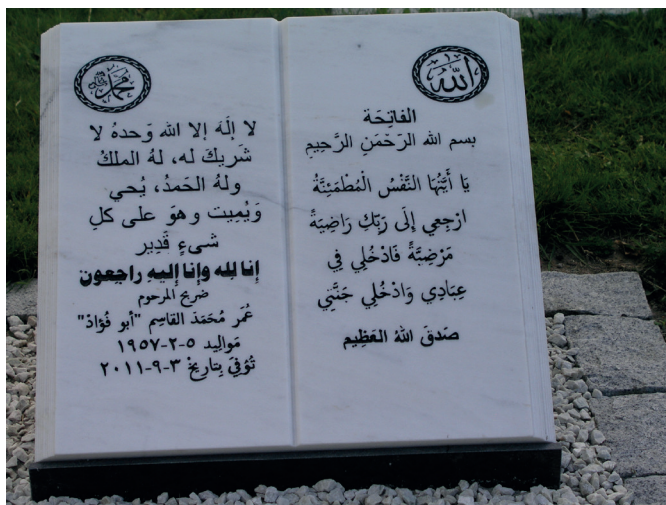 الله
الفَاتِحَة
بسم الله الرَحْمَنِ الرَّحِيمِ
يَا أَيَّتُهَا النَّفْسُ الْمُطْمَئِنَّةُ
ارْجِعِي إِلَى رَبِّكِ رَاضِيَةً
مَرْضِيَّةً فَادْخُلِي فِي
عِبَادِي وَادْخُلِي جَنَّتِي
صَدَقَ اللهُ العَظِيم
محمد
لا إلَهَ إلا الله وَحدهُ لا
شَريكَ له، لهُ الملكُ
ولهُ الحَمدُ، يُحي
وَيُميت وهوَ على كلِ
شىءٍ قَدِير
إنا لله وإنا إليهِ راجعون
ضريح المرحوم
عُمَر مُحَمَد القاسِم "أبو فُؤادْ"
مَواليد ٥-٢-١٩٥٧
تُوُفِيَ بِتاريخْ ٣-٩-٢٠١١